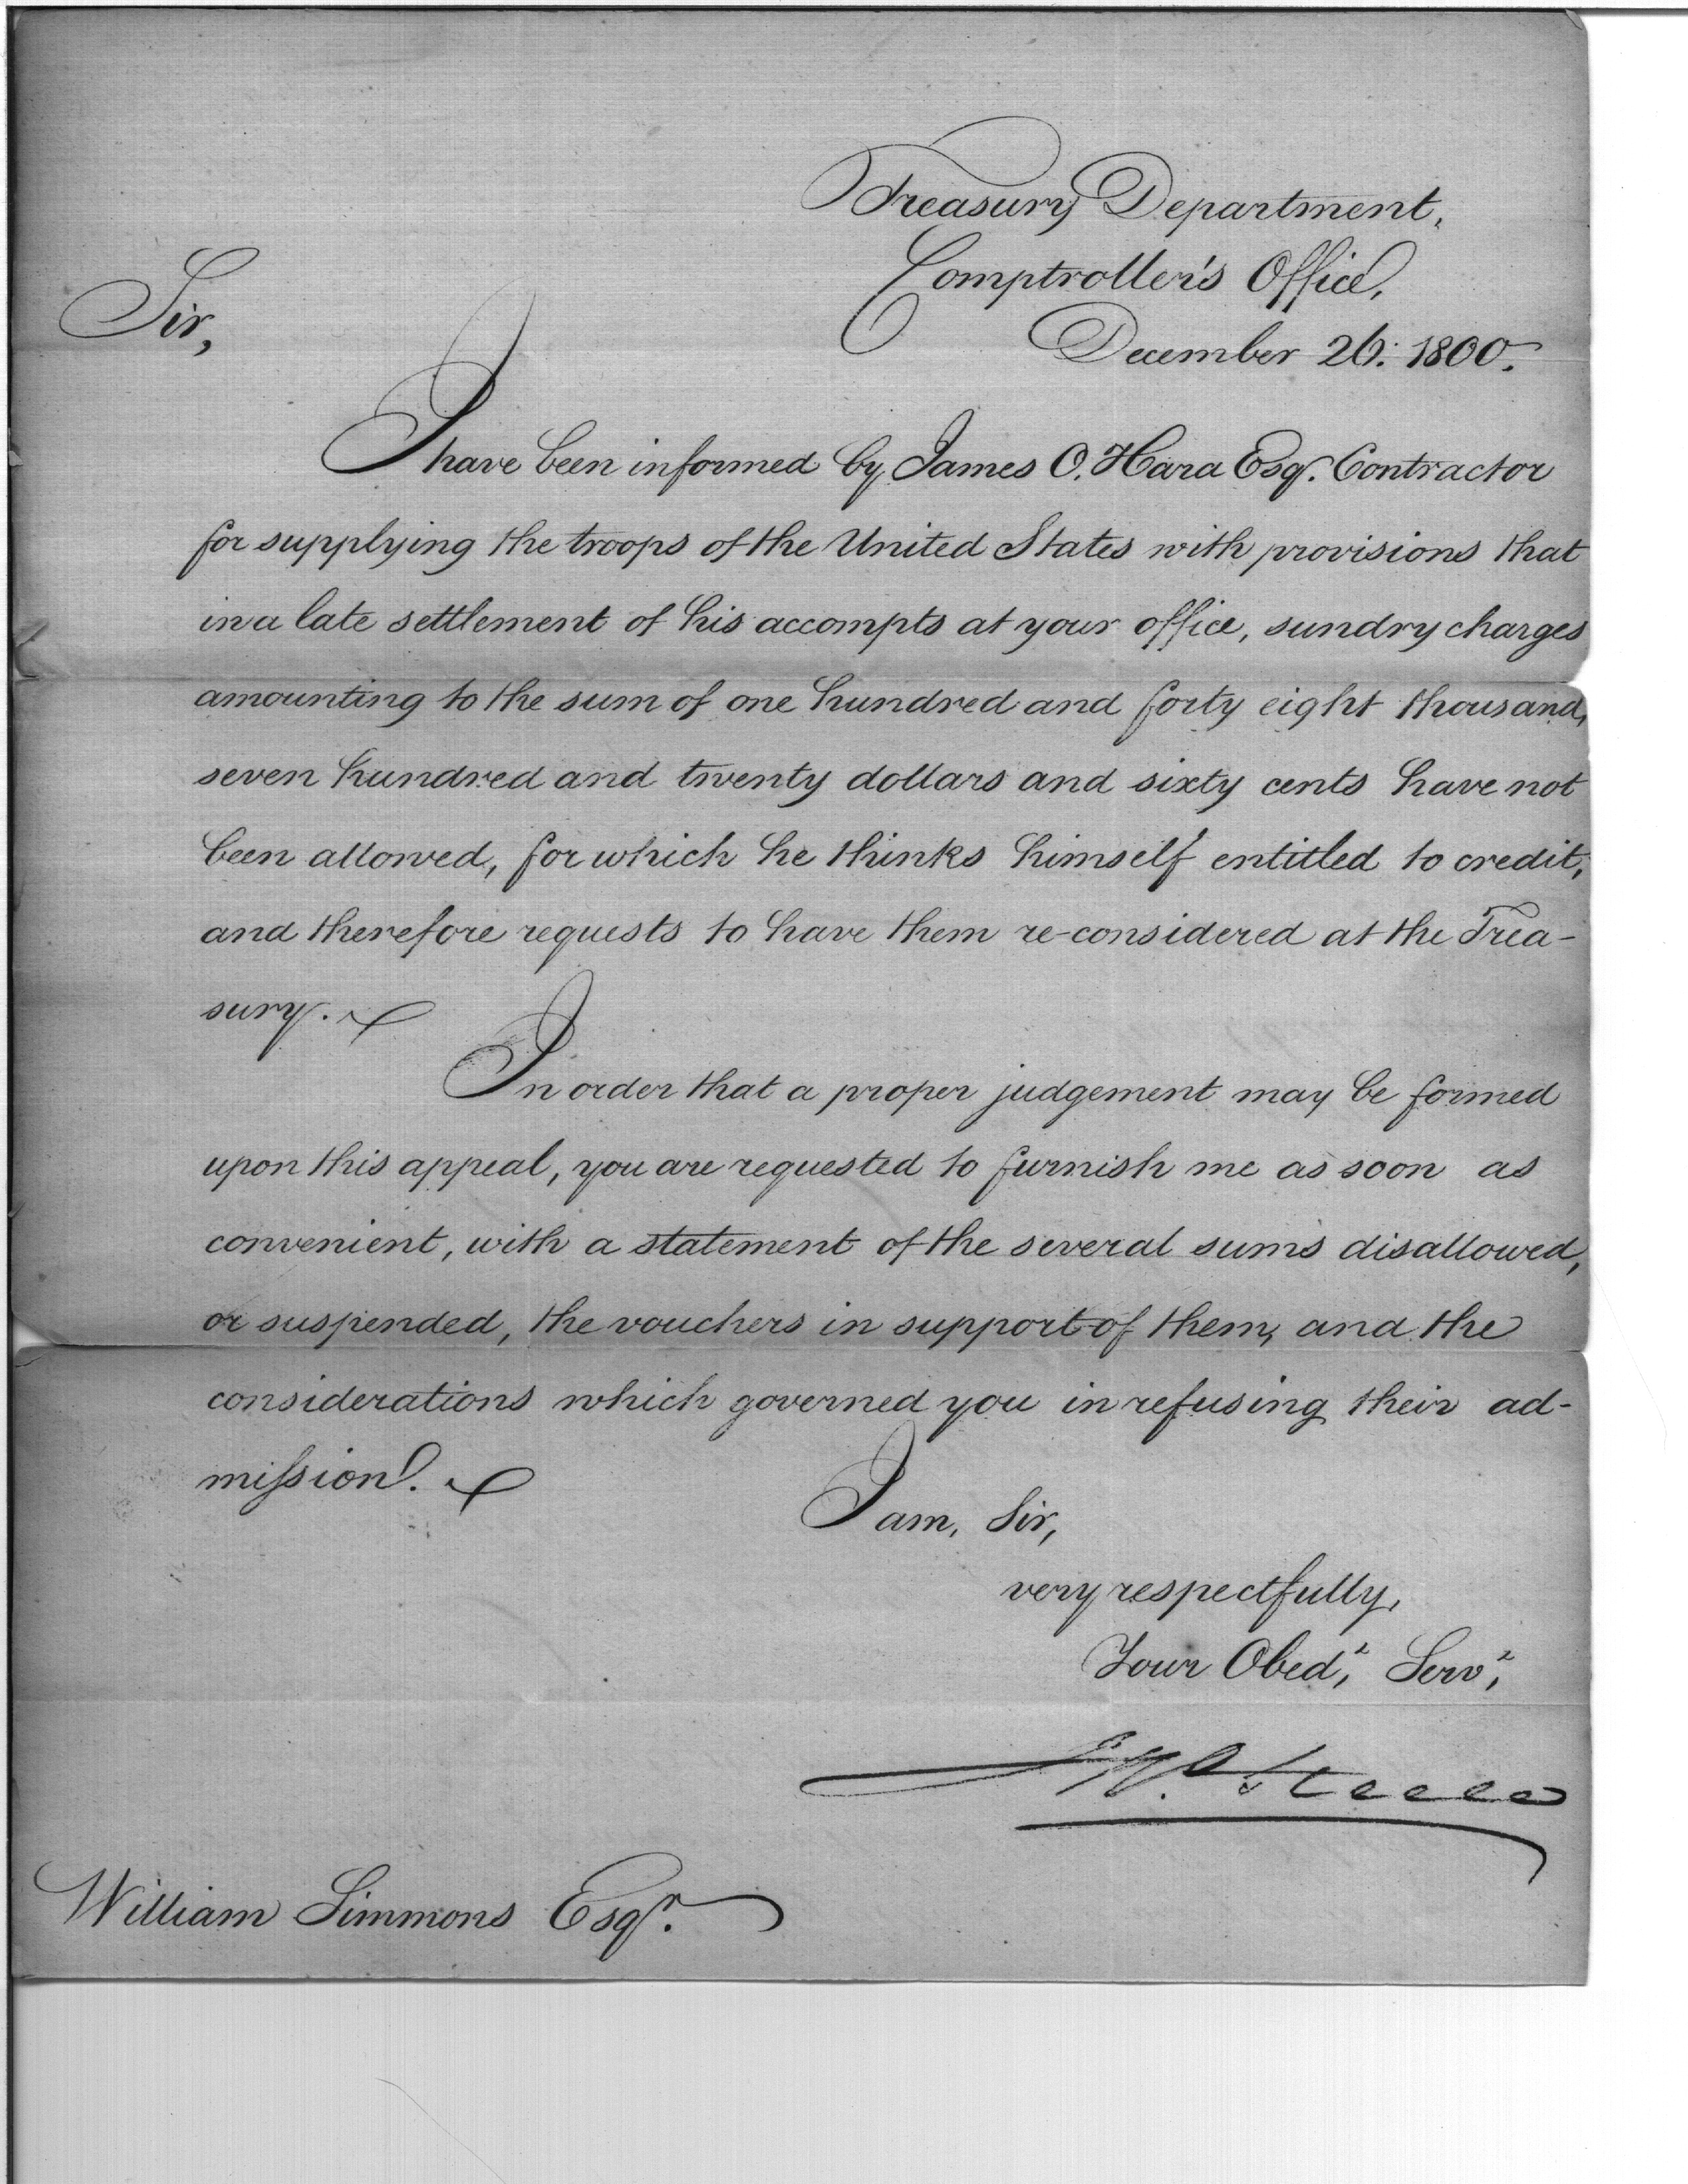 Treasury Department,
Comptroller's Office,
December 26: 1800.
Sir,
I have been informed by James O.Hara Esqr. Contractor
for supplying the troops of the United States with provisions that
in a late settlement of his accompts at your office, sundry charges
amounting to the sum of one hundred and forty eight thousand,
seven hundred and twenty dollars and sixty cents have not
been allowed, for which he thinks himself entitled to credit,
and therefore requests to have them re-considered at the Trea-
sury.
In order that a proper judgement may be formed
upon this appeal, you are requested to furnish me as soon as
convenient, with a statement of the several sums disallowed,
or suspended, the vouchers in support of them, and the
considerations which governed you in refusing their ad-
mission.
I am, Sir,
very respectfully,
Your Obedt, Servt,
Jno. Steele
William Simmons Esqr.